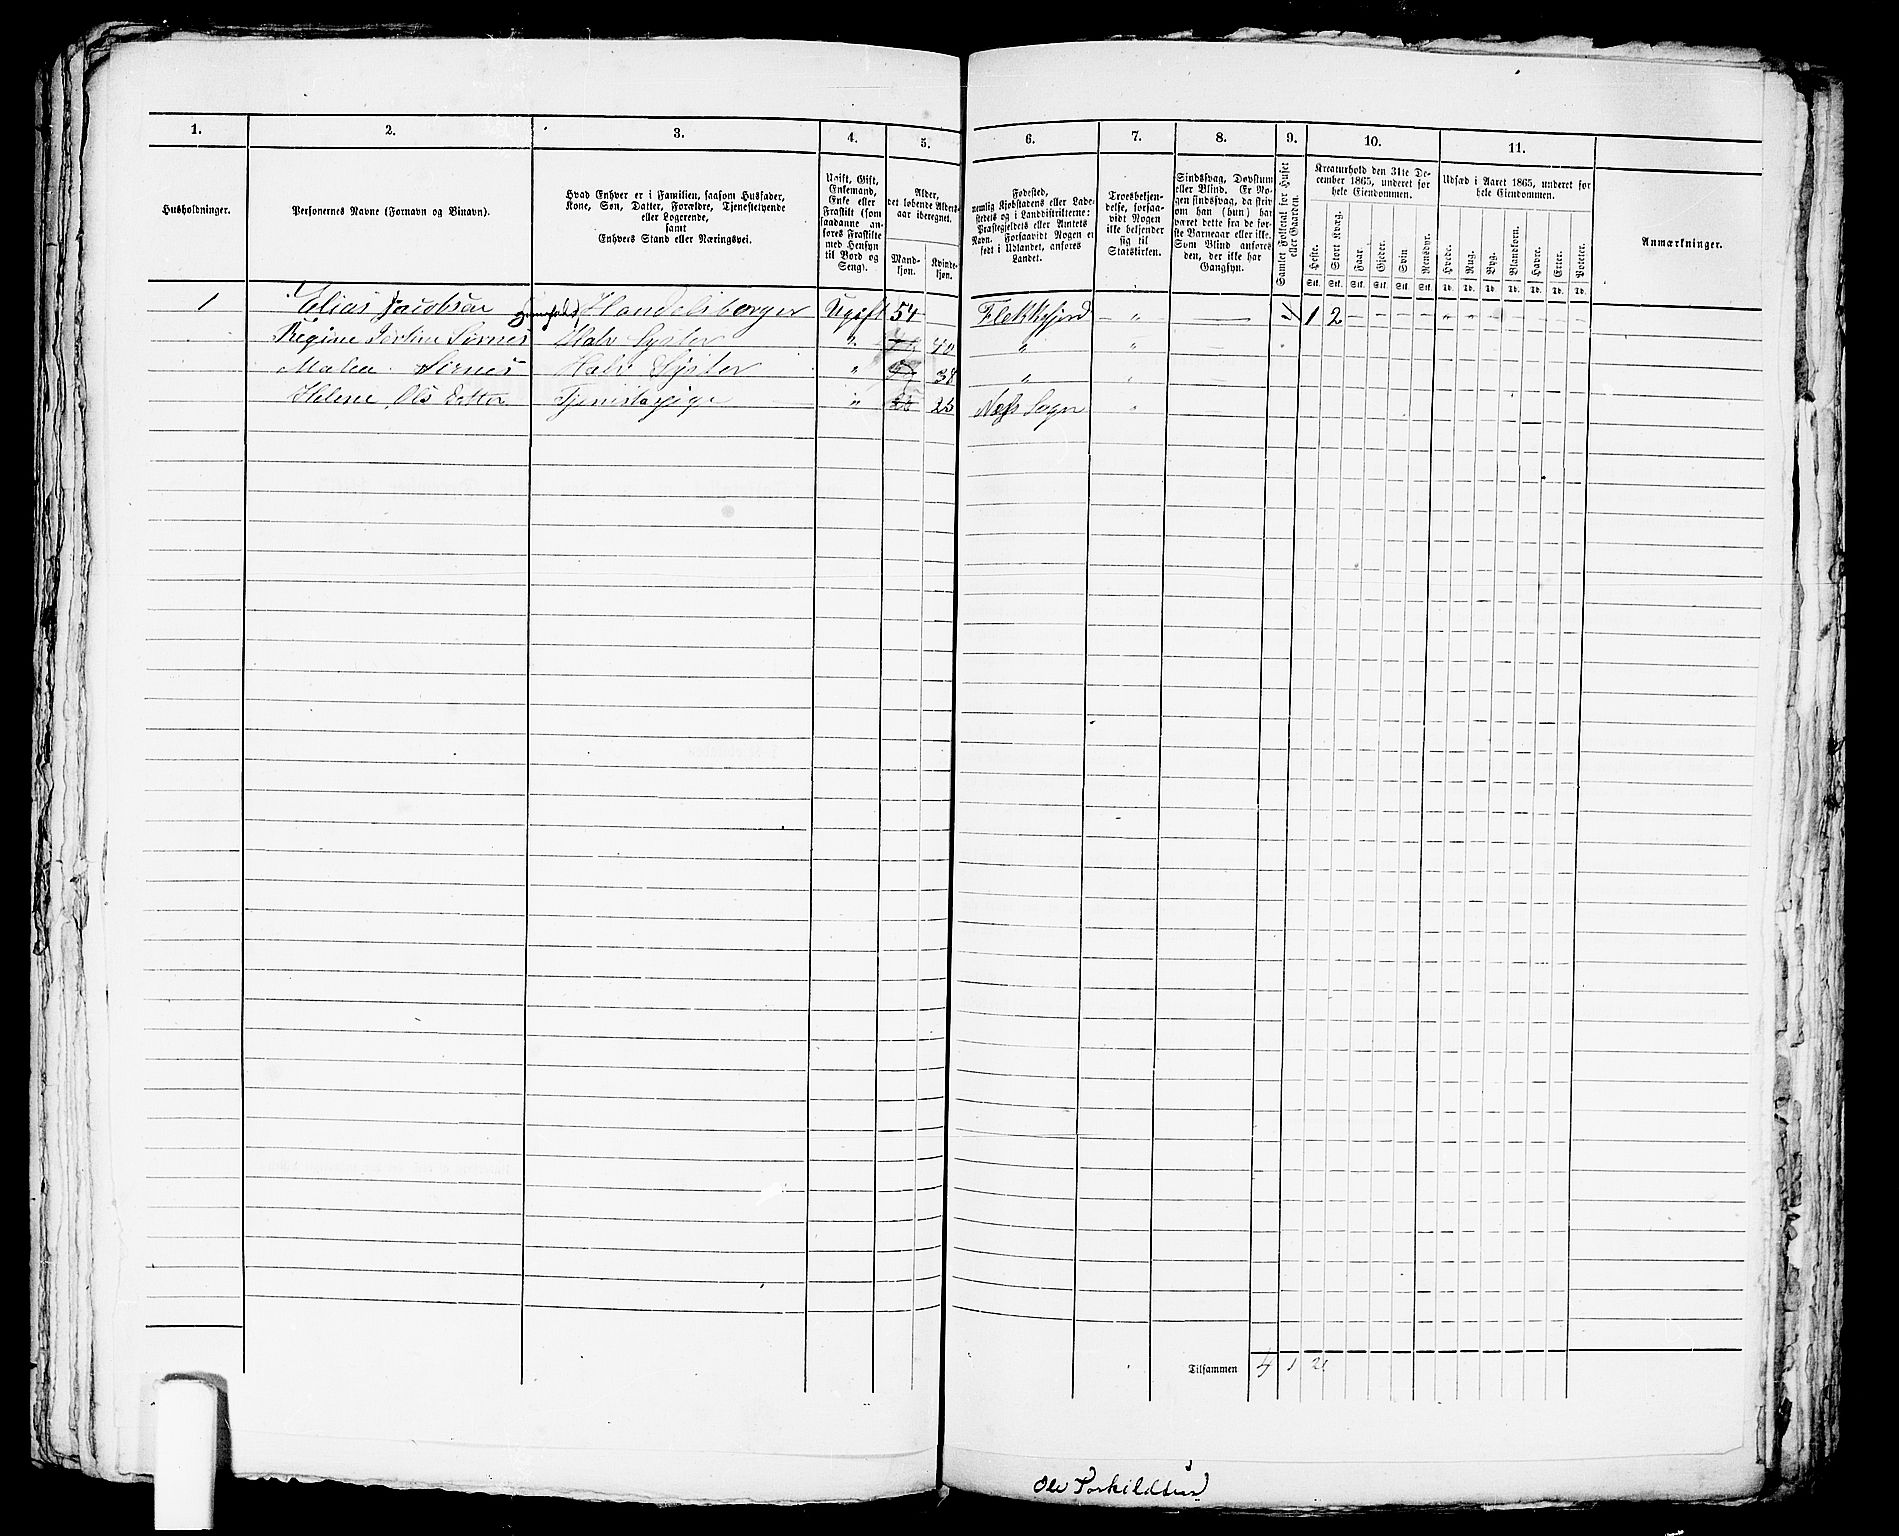 1. 2. 3. 4. 5. 6. 7. 8. 9. 10. 11.
Husholdninger.
Personernes Navne (Fornavn og Binavn).
Hvad Enhver er i Familien, saasom Husfader,
Kone, Søn, Datter, Forældre, Tjenestetyende
eller Logerende,
samt
Enhvers Stand eller Næringsvei.
Ugift, Gift,
Enkemand,
Enke eller
Fraskilt (som
saadanne an-
føres Fraskilte
med Hensyn
til Bord og
Seng).
Alder,
det løbende Alders-
aar iberegnet.
Mand-
kjøn.
Kvinde-
kjøn.
Fødested,
nemlig Kjøbstadens eller Lade-
stedets og i Landdistrikterne:
Præstegjeldets eller Amtets
Navn. Forsaavidt Nogen er
født i Udlandet, anføres
Landet.
Troesbekjen-
delse, forsaa-
vidt Nogen
ikke bekjender
sig til
Statskirken.
Sindssvag, Døvstum
eller Blind. Er No-
gen sindssvag, da skriv
om han (hun) har
været dette fra de før-
ste Barneaar eller ikke.
Som Blind anføres
den, der ikke har
Gangsyn.
Samlet Folketal for Huset
eller Gaarden.
Kreaturhold den 31te De-
cember 1865, underet for
hele Eiendommen.
Heste. Stort Kvæg. Faar. Gjeder. Svin Rensdyr.
Stk. Stk. Stk. Stk. Stk. Stk.
Udsæd i Aaret 1865, underet for
hele Eiendommen.
Hvede. Rug. Byg. Blandkorn. Havre. Erter. Poteter.
Td. Td. Td. Td. Td. Td. Td.
Anmærkninger.
1 Elias Jacobsen Handelsborger Ugift 54 Flekkefjord — „ 4 1 2
Regine Sirnes Halv Syster „ 40 „ „
Malea Sirnes Halv Syster „ 38 „ „
Helene Ols Datter Tjenistepige „ 25 Næs Sogn „
Tilsammen 4 1 2
Ole Torkildsen